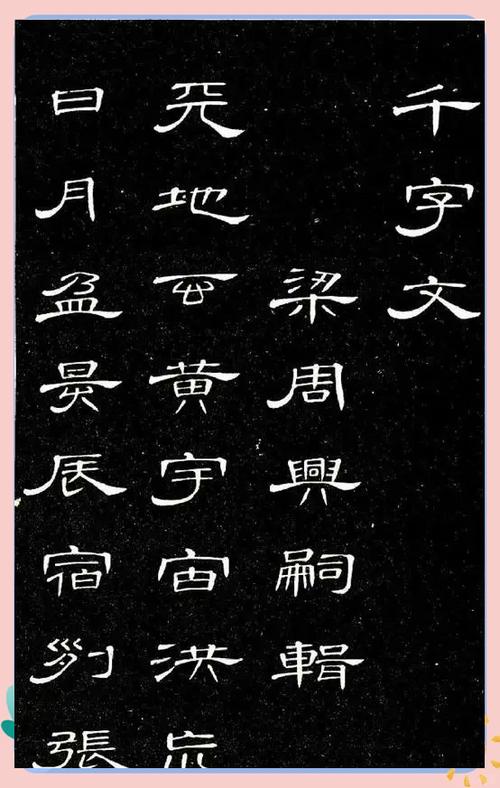 千字文
梁周興嗣輯
天地玄黃宇宙洪
日月盈昃辰宿列張